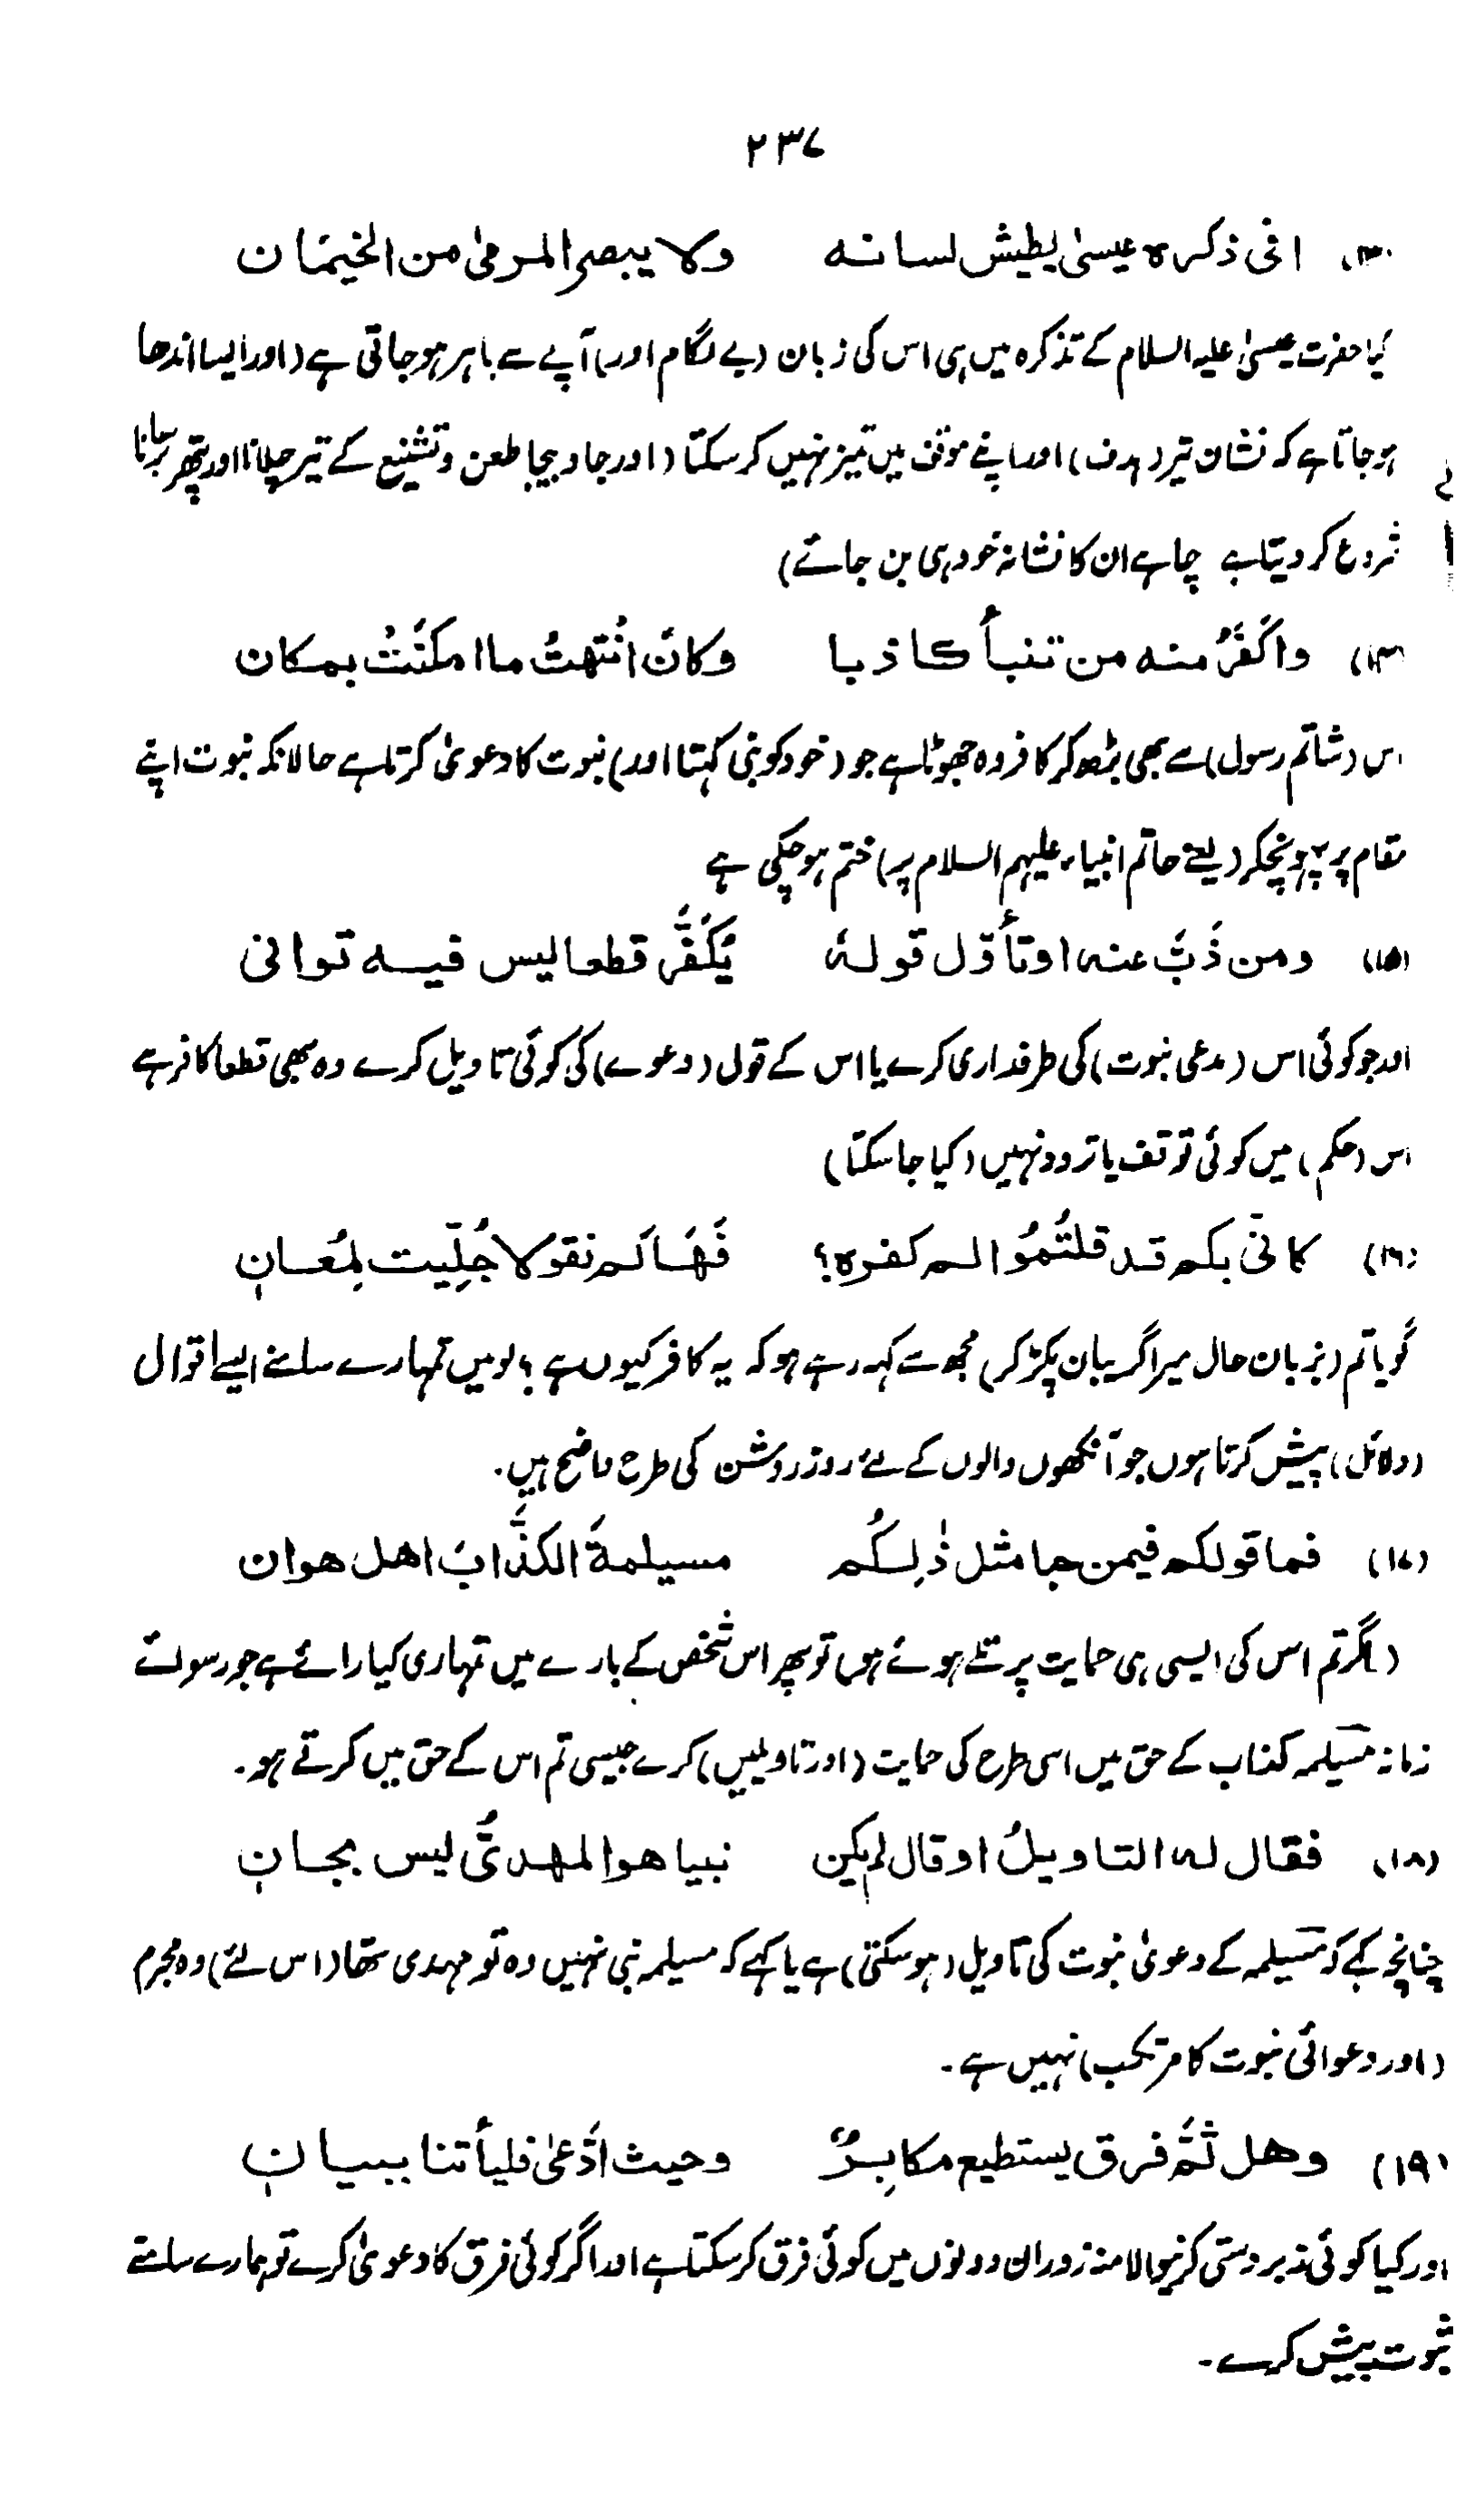 ۲۳۷
(۱۳) افی ذکرہ عیسیٰ یطیش لسانہ ولا یبصر المرمیٰ من الخیمان
کیا حضرت عیسیٰ علیہ السلام کے تذکرہ میں ہی اس کی زبان (بے لگام اور) آپے سے باہر ہو جاتی ہے (اور ایسا اندھا
ہو جاتا ہے کہ نشان تیر (ہدف) اور اپنے موقف میں تمیز نہیں کر سکتا (اور جا و بیجا طعن و تشنیع کے تیر چلانا اور پتھر برسانا
شروع کر دیتا ہے چاہے ان کا نشانہ خود ہی بن جائے)
(۱۴) واکفرُ منہ من تنبأ کاذبا وکانَ انتھتْ ما امکنَتْ بمکان
اس (شاتم رسول) سے بھی بڑھ کر کافر وہ جھوٹا ہے جو (خود کو نبی کہتا اور) نبوت کا دعویٰ کرتا ہے حالانکہ نبوت اپنے
مقام پر پہونچکر (یعنی خاتم انبیاء علیہم السلام پر) ختم ہو چکی ہے
(۱۵) ومن ذَبَّ عنہ او تأوّل قولہٗ یُکَفَّرُ قطعا لیس فیہ توانی
اور جو کوئی اس (مدعی نبوت) کی طرفداری کرے یا اس کے قول (دعوے) کی کوئی تاویل کرے وہ بھی قطعاً کافر ہے
اس (حکم) میں کوئی توقف یا تردد نہیں (کیا جا سکتا)
(۱۶) کانی بکم قد قلتُموُا لم کفرہ؟ فَھَاکَم نقولا جُلِّیت لِمُعَانِ
گویا تم (بزبان حال میرا گریبان پکڑ کر) مجھ سے کہہ رہے ہو کہ یہ کافر کیوں ہے؟ لو میں تمہارے سامنے ایسے اقوال
(دلائل) پیش کرتا ہوں جو آنکھوں والوں کے لئے روز روشن کی طرح واضح ہیں۔
(۱۷) فما قولکم فیمن جا مثل ذٰلِکُم مسیلمۃَ الکذَّابَ اھل ھوان
(اگر تم اس کی ایسی ہی حمایت پر تلے ہوئے ہو) تو پھر اس شخص کے بارے میں تمہاری کیا رائے ہے جو رسوائے
زمانہ مسیلمہ کذاب کے حق میں اسی طرح کی حمایت (اور تاویلیں) کرے جیسی تم اس کے حق میں کرتے ہو۔
(۱۸) فقال لہ التاویلُ او قال لم یکن نبیا ھو المھدیُّ لیس بجانِ
چنانچہ کہے کہ مسیلمہ کے دعویٰ نبوت کی تاویل (ہو سکتی) ہے یا کہے کہ مسیلمہ نبی نہیں وہ تو مہدی تھا (اس لئے) وہ مجرم
(اور دعوائی نبوت کا مرتکب) نہیں ہے۔
(۱۹) وھل ثَمَّ فرق یستطیع مکابِرٌ وحیث ادَّعیٰ فلیأتنا ببیانِ
اور کیا کوئی زبردستی کرنیوالا منہ زور ان دونوں میں کوئی فرق کر سکتا ہے اور اگر کوئی فرق کا دعویٰ کرے تو ہمارے سامنے
ثبوت پیش کرے۔